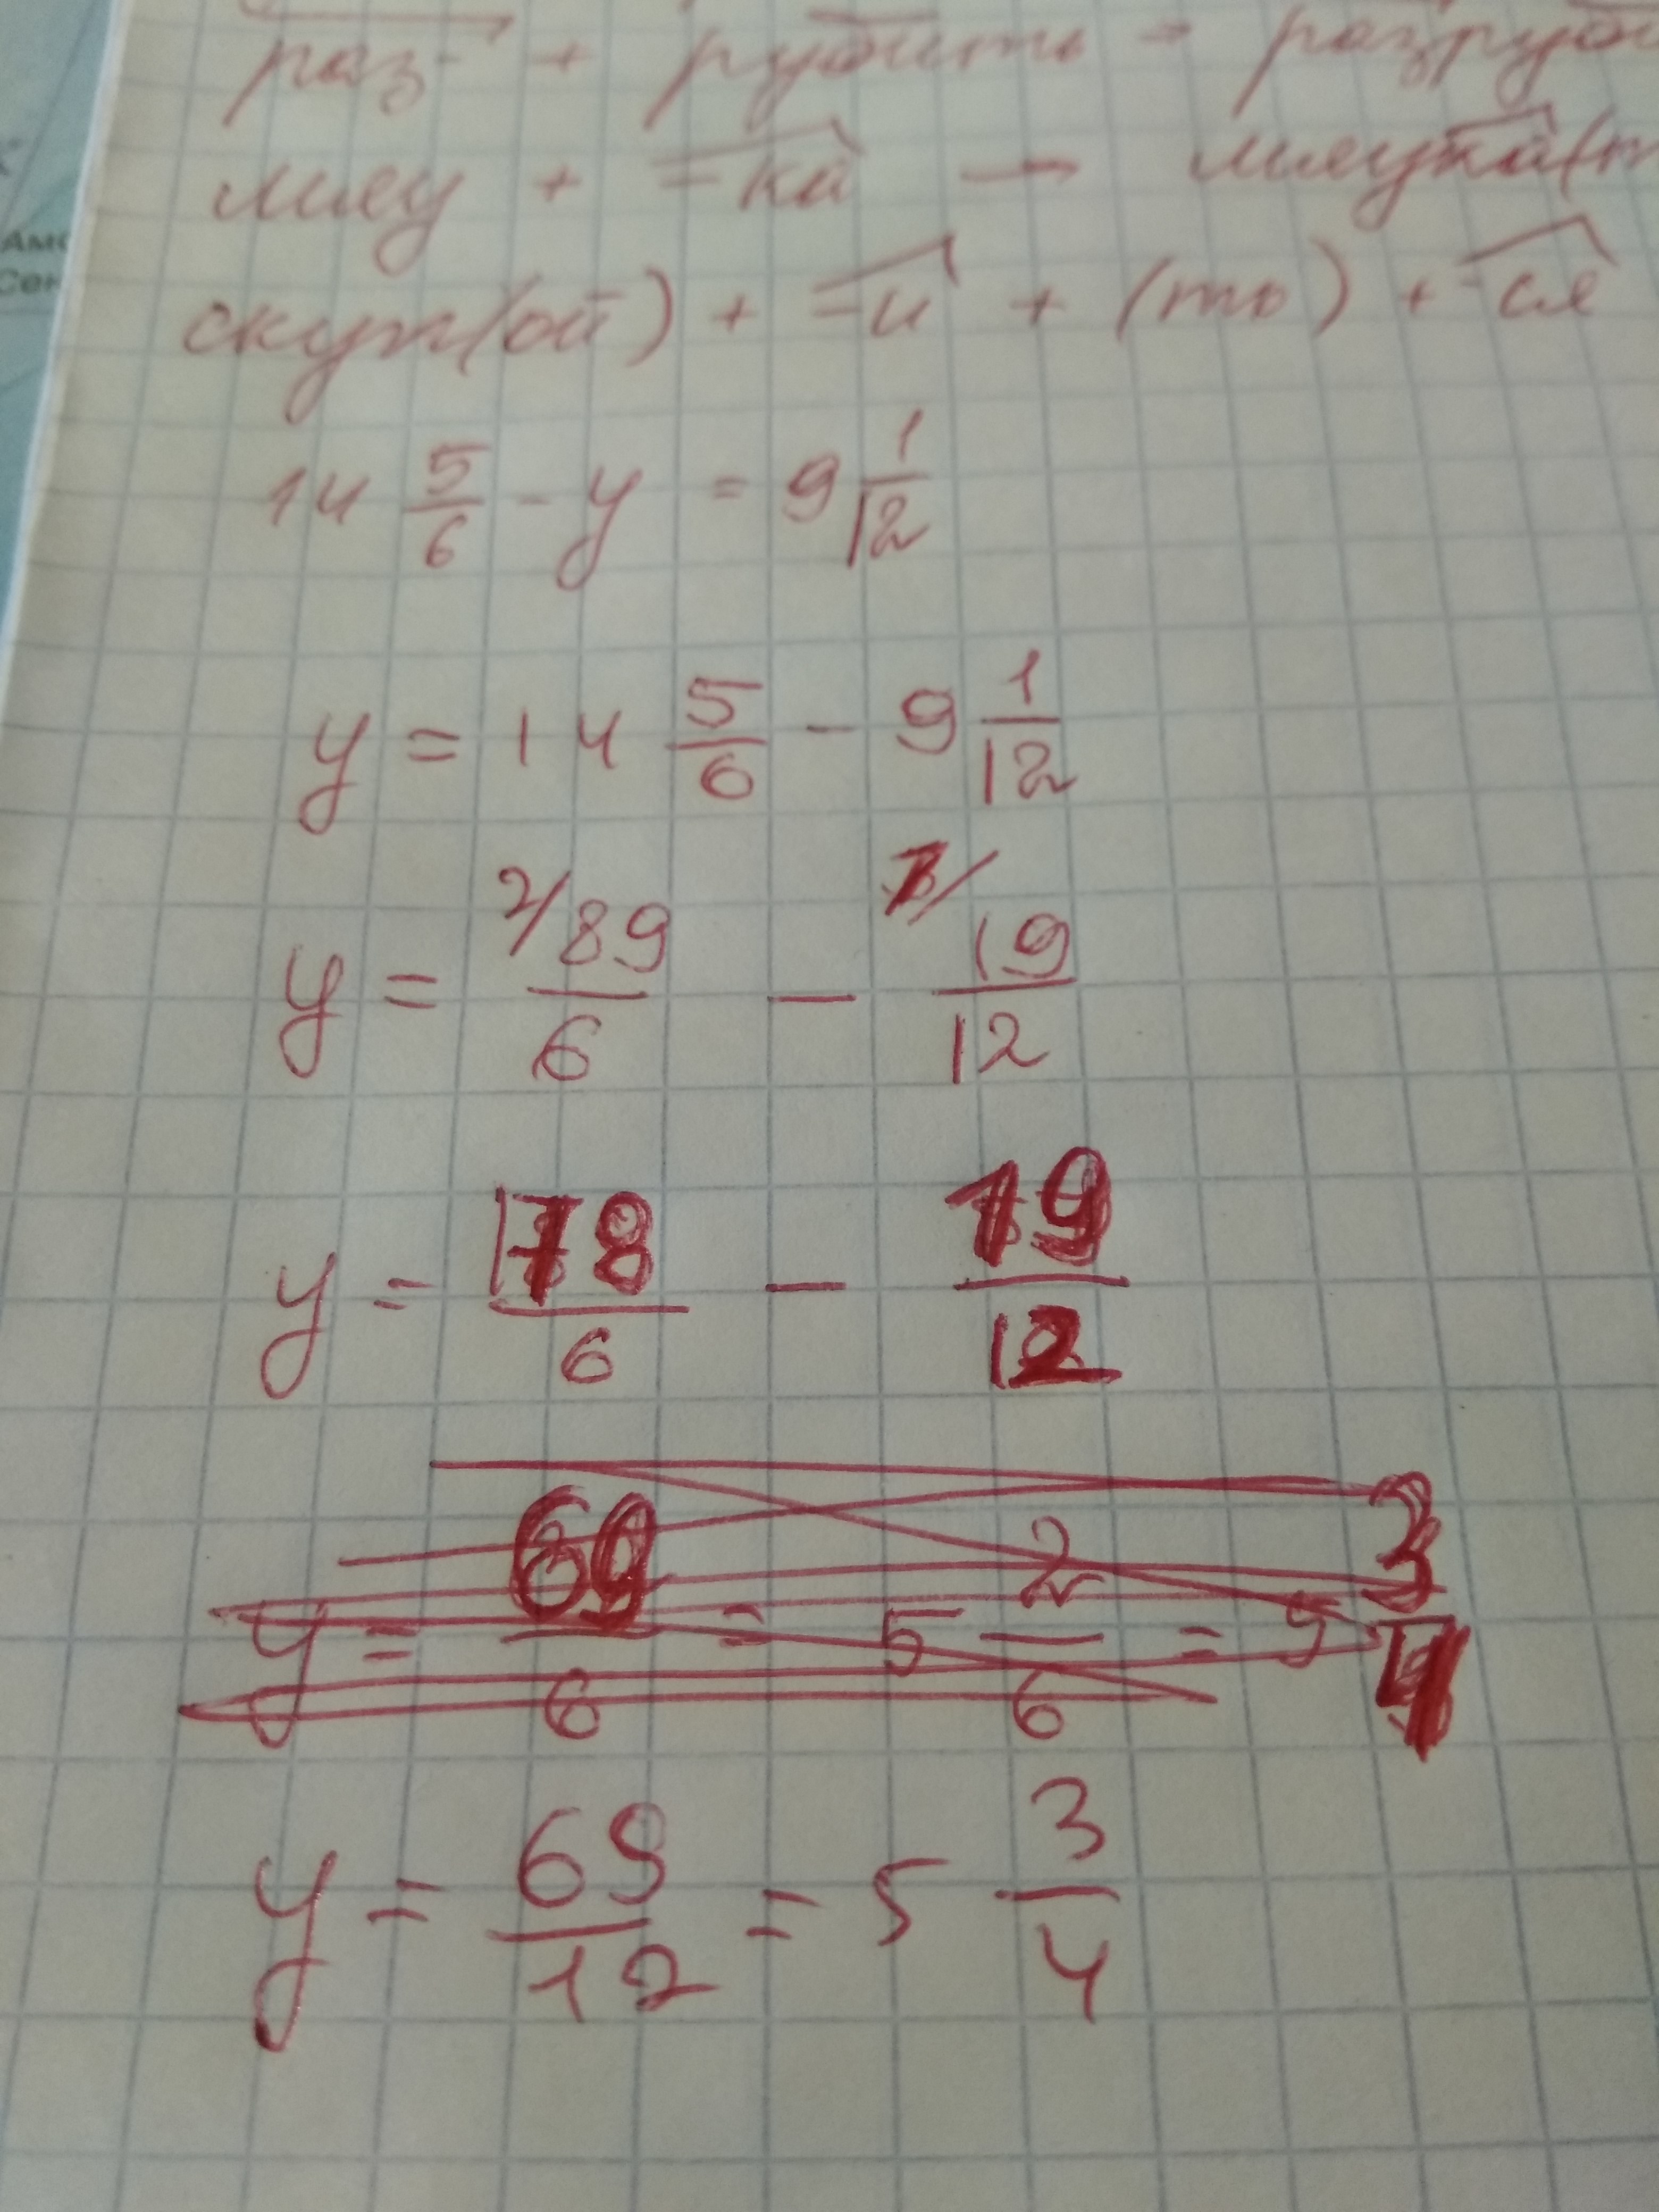 раз- + рубить = разруби
мяу + -ка → мяука(т
скуп(ой) + -и + (ть) + -ся
14 5/6 - y = 9 1/12
y = 14 5/6 - 9 1/12
y = 2/ 89/6 - 1/ 19/12
y = 178/6 - 19/12
y = 69/6 = 5 2/6 = 5 3/4
y = 69/12 = 5 3/4